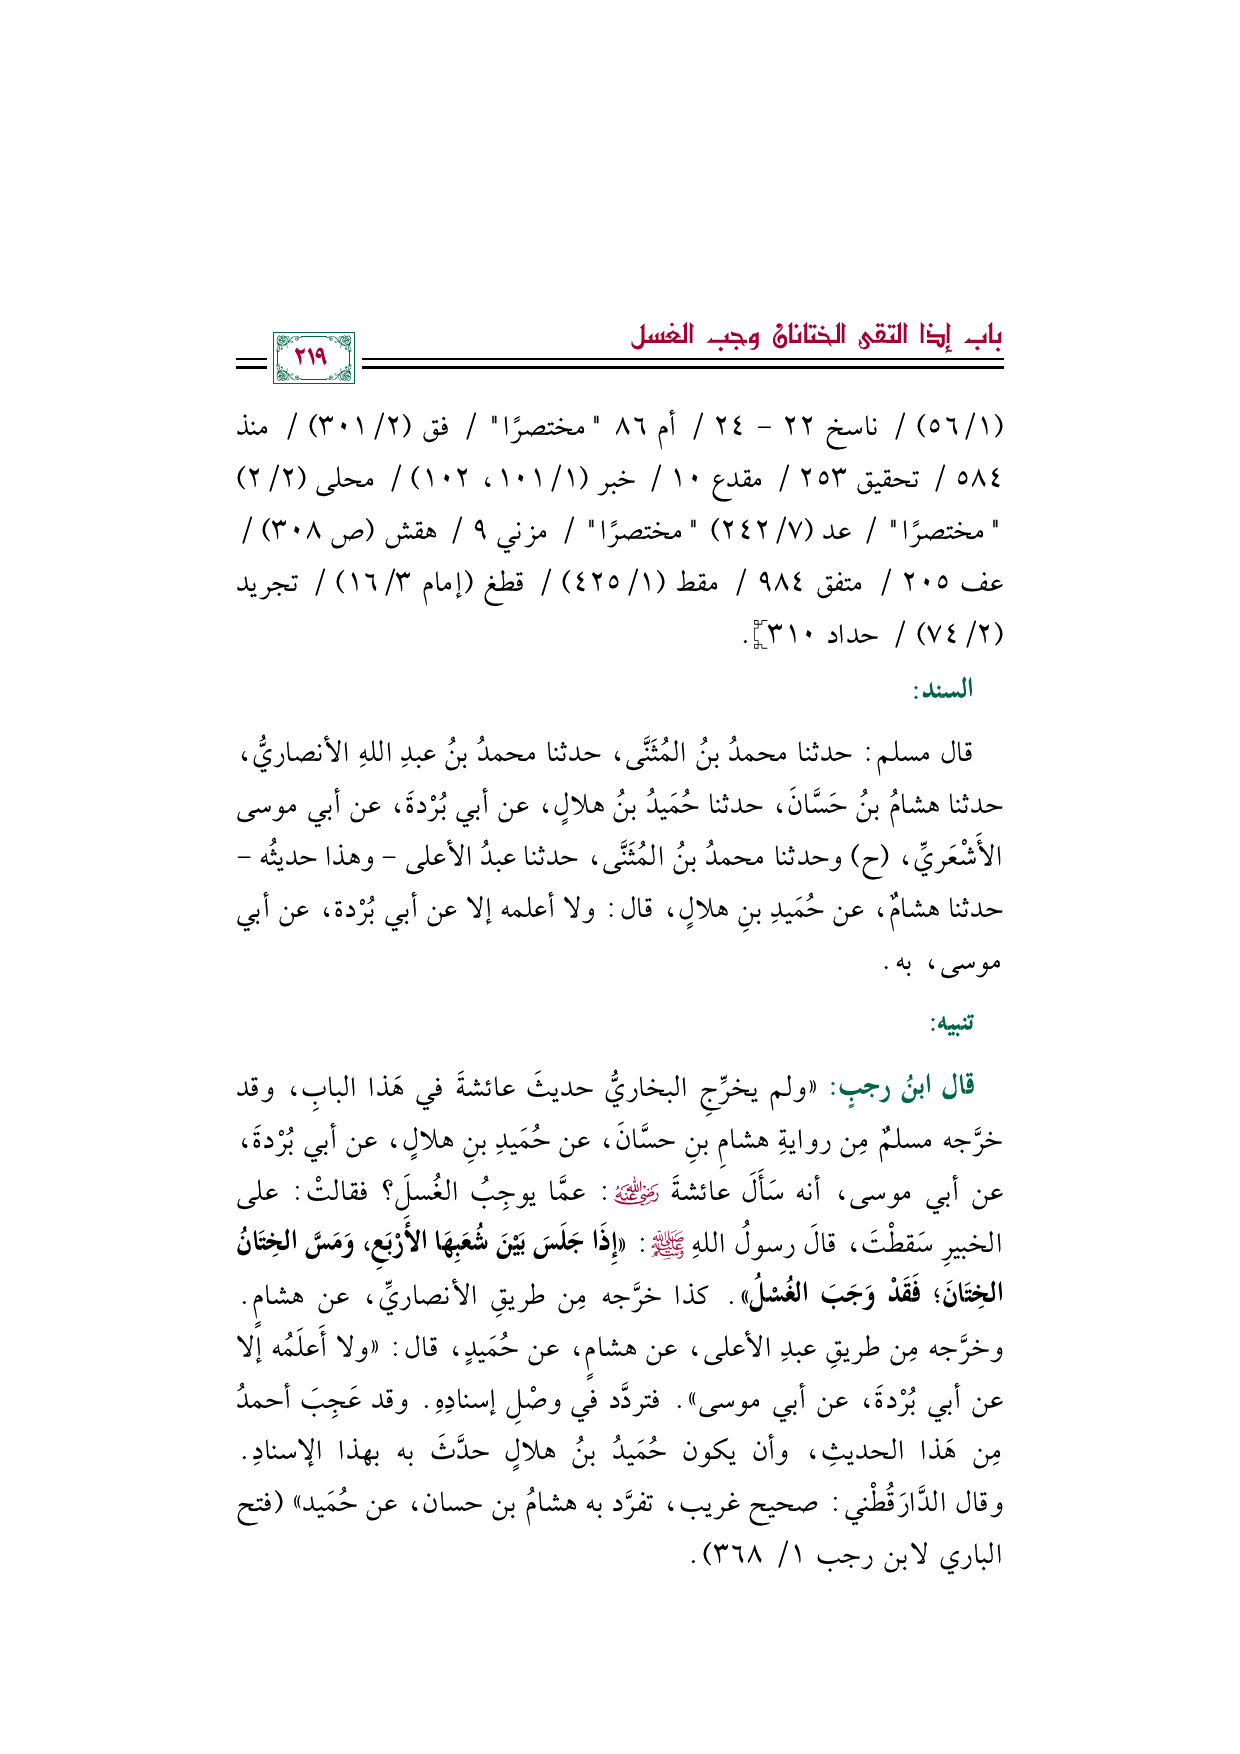 باب إذا التقى الختانان وجب الغسل
٢١٩
(١/ ٥٦) / ناسخ ٢٢ – ٢٤ / أم ٨٦ "مختصرًا" / فق (٢/ ٣٠١) / منذ
٥٨٤ / تحقيق ٢٥٣ / مقدع ١٠ / خبر (١/ ١٠١، ١٠٢) / محلى (٢/ ٢)
"مختصرًا" / عد (٧/ ٢٤٢) "مختصرًا" / مزني ٩ / هقش (ص ٣٠٨) /
عف ٢٠٥ / متفق ٩٨٤ / مقط (١/ ٤٢٥) / قطغ (إمام ٣/ ١٦) / تجريد
(٢/ ٧٤) / حداد ٣١٠].
السند:
قال مسلم: حدثنا محمدُ بنُ المُثَنَّى، حدثنا محمدُ بنُ عبدِ اللهِ الأنصاريُّ،
حدثنا هشامُ بنُ حَسَّانَ، حدثنا حُمَيدُ بنُ هلالٍ، عن أبي بُرْدةَ، عن أبي موسى
الأَشْعَريِّ، (ح) وحدثنا محمدُ بنُ المُثَنَّى، حدثنا عبدُ الأعلى – وهذا حديثُه –
حدثنا هشامٌ، عن حُمَيدِ بنِ هلالٍ، قال: ولا أعلمه إلا عن أبي بُرْدة، عن أبي
موسى، به.
تنبيه:
قال ابنُ رجبٍ: «ولم يخرِّجِ البخاريُّ حديثَ عائشةَ في هَذا البابِ، وقد
خرَّجه مسلمٌ مِن روايةِ هشامِ بنِ حسَّانَ، عن حُمَيدِ بنِ هلالٍ، عن أبي بُرْدةَ،
عن أبي موسى، أنه سَأَلَ عائشةَ رضي الله عنها: عمَّا يوجِبُ الغُسلَ؟ فقالتْ: على
الخبيرِ سَقطْتَ، قالَ رسولُ اللهِ ﷺ: «إِذَا جَلَسَ بَيْنَ شُعَبِهَا الأَرْبَعِ، وَمَسَّ الخِتَانُ
الخِتَانَ؛ فَقَدْ وَجَبَ الغُسْلُ». كذا خرَّجه مِن طريقِ الأنصاريِّ، عن هشامٍ.
وخرَّجه مِن طريقِ عبدِ الأعلى، عن هشامٍ، عن حُمَيدٍ، قال: «ولا أَعلَمُه إلا
عن أبي بُرْدةَ، عن أبي موسى». فتردَّد في وصْلِ إسنادِهِ. وقد عَجِبَ أحمدُ
مِن هَذا الحديثِ، وأن يكون حُمَيدُ بنُ هلالٍ حدَّثَ به بهذا الإسنادِ.
وقال الدَّارَقُطْني: صحيح غريب، تفرَّد به هشامُ بن حسان، عن حُمَيد» (فتح
الباري لابن رجب ١/ ٣٦٨).